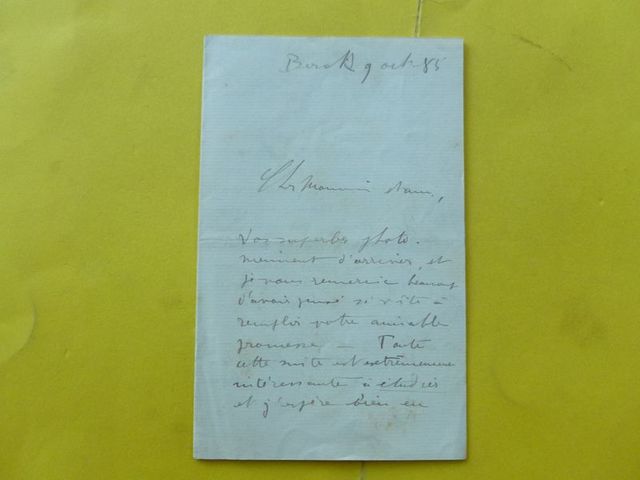 Berck 9 oct 85
Cher Monsieur
Vos superbes photo.
viennent d'arriver, et
je vous remercie beaucoup
d'avoir pensé si vite à
remplir votre aimable
promesse — Toute
cette suite est extrêmement
intéressante à étudier
et j'espère bien en